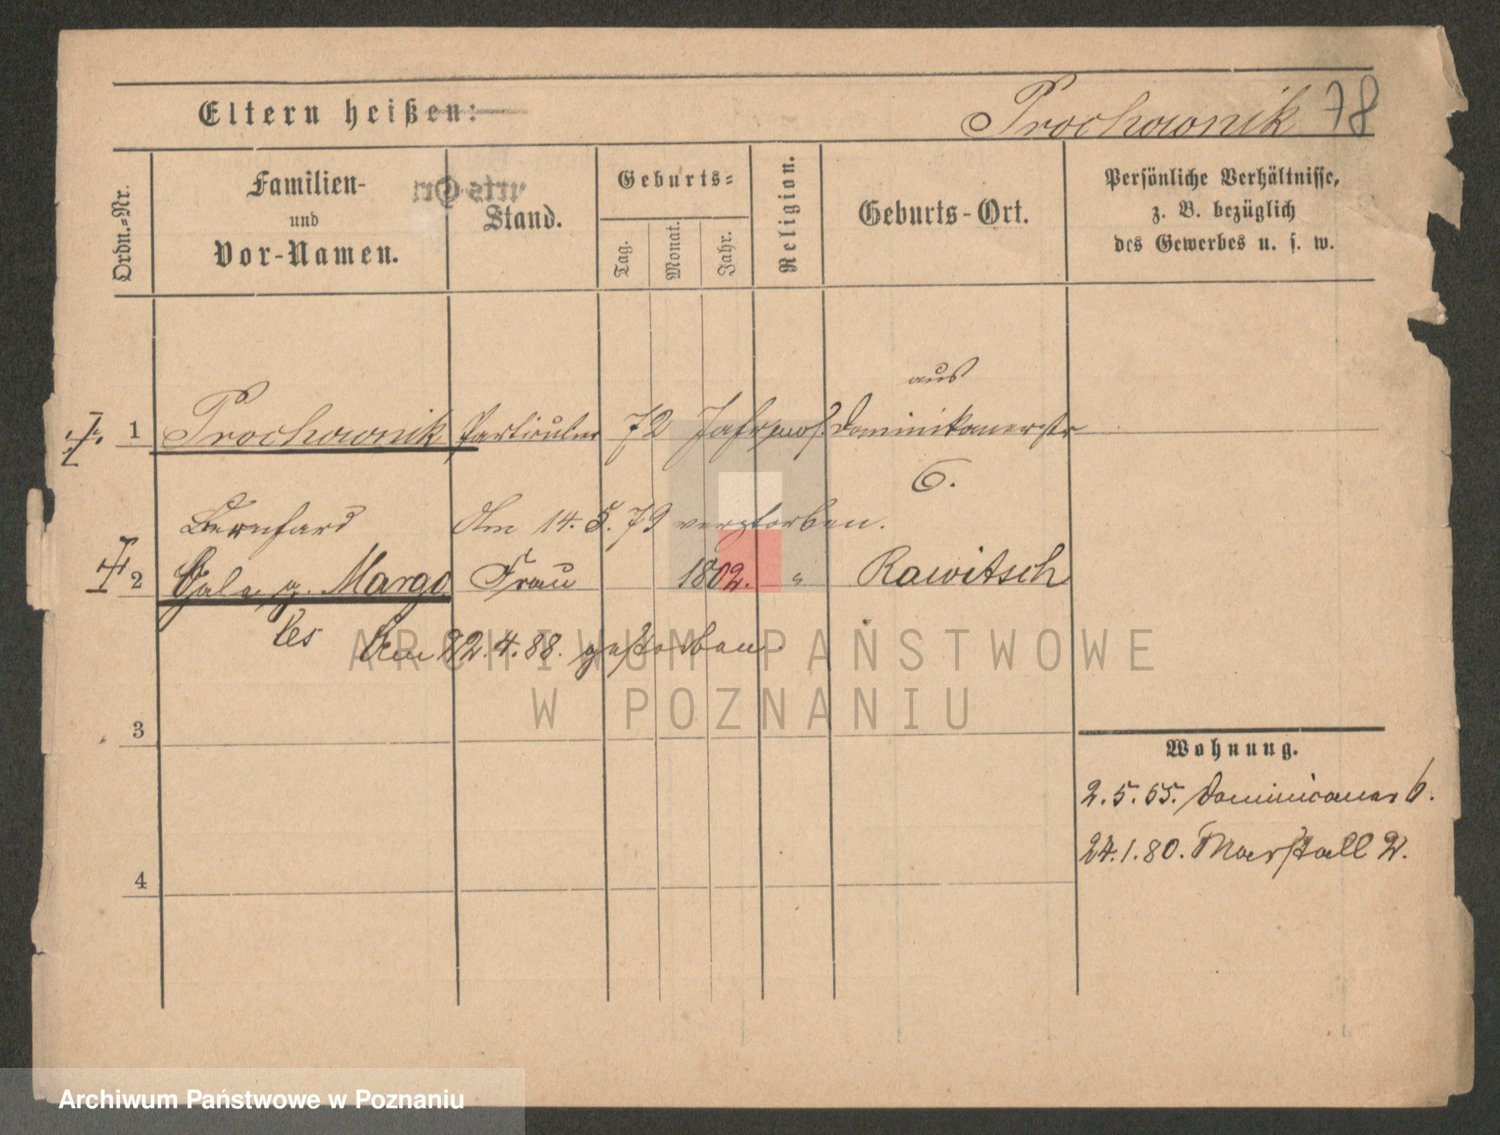 Eltern heißen:
Prochownik 78
Ordn.-Nr.
Familien-
und
Vor-Namen.
Stand.
Geburts-
Tag.
Monat.
Jahr.
Religion.
Geburts-Ort.
Persönliche Verhältnisse,
z. B. bezüglich
des Gewerbes u. s. w.
aus
1 Prochownik Particulier 72 Jahr mos. Dominikanerstr
6.
Bernhard Am 14. 5. 79 verstorben.
2 g. Margo Frau 1802. " Rawitsch
les Am 22. 4. 88. gestorben.
3
Wohnung.
2. 5. 65. Dominicaner 6.
24. 1. 80. Marstall 2.
4
ARCHIWUM PAŃSTWOWE
W POZNANIU
Archiwum Państwowe w Poznaniu